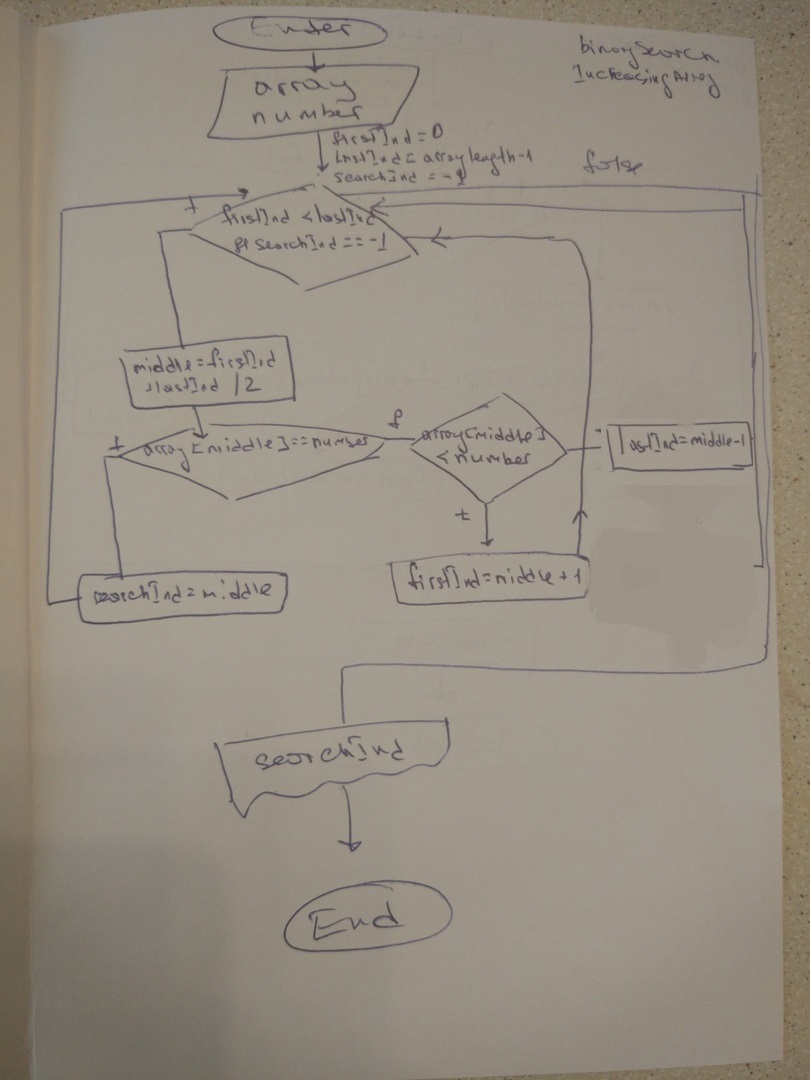 Enter
binarySearch
IncreasingArray
array
number
firstInd = 0
lastInd = array length - 1
searchInd = -1
false
t
firstInd < lastInd
&& searchInd == -1
middle = firstInd
+ lastInd / 2
t
array[middle] == number
f
array[middle]
< number
lastInd = middle - 1
t
searchInd = middle
firstInd = middle + 1
searchInd
End